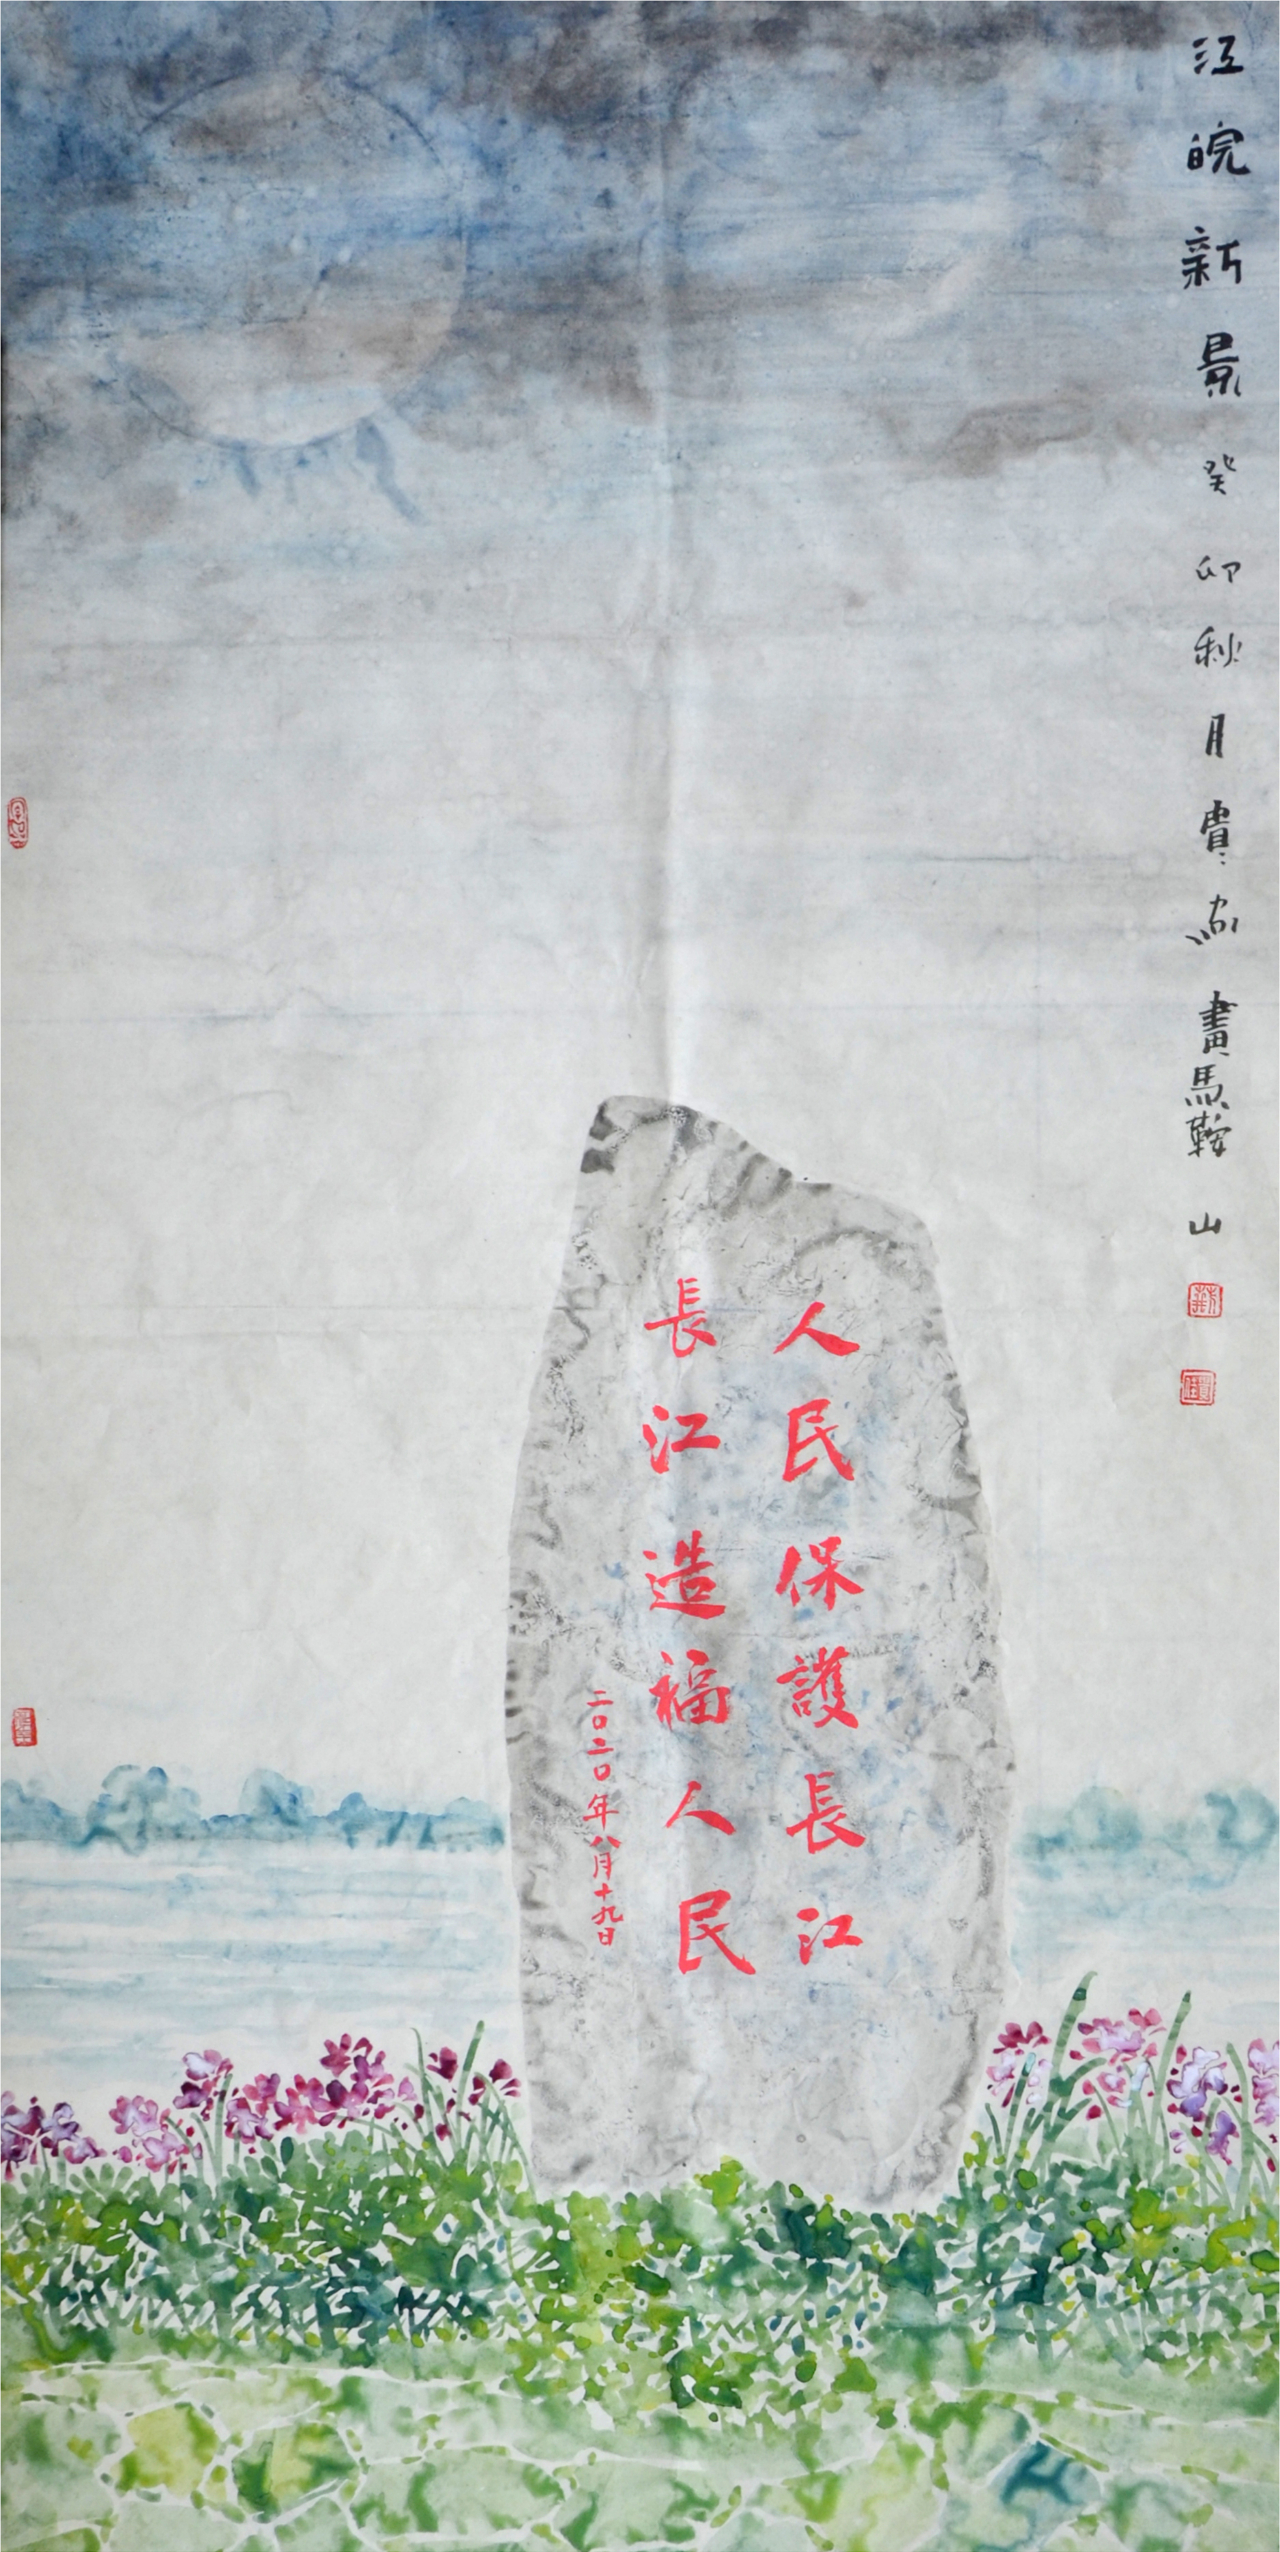 江皖新景 癸卯秋月貴 畫馬鞍山
人民保護長江
長江造福人民
二〇二〇年八月十九日